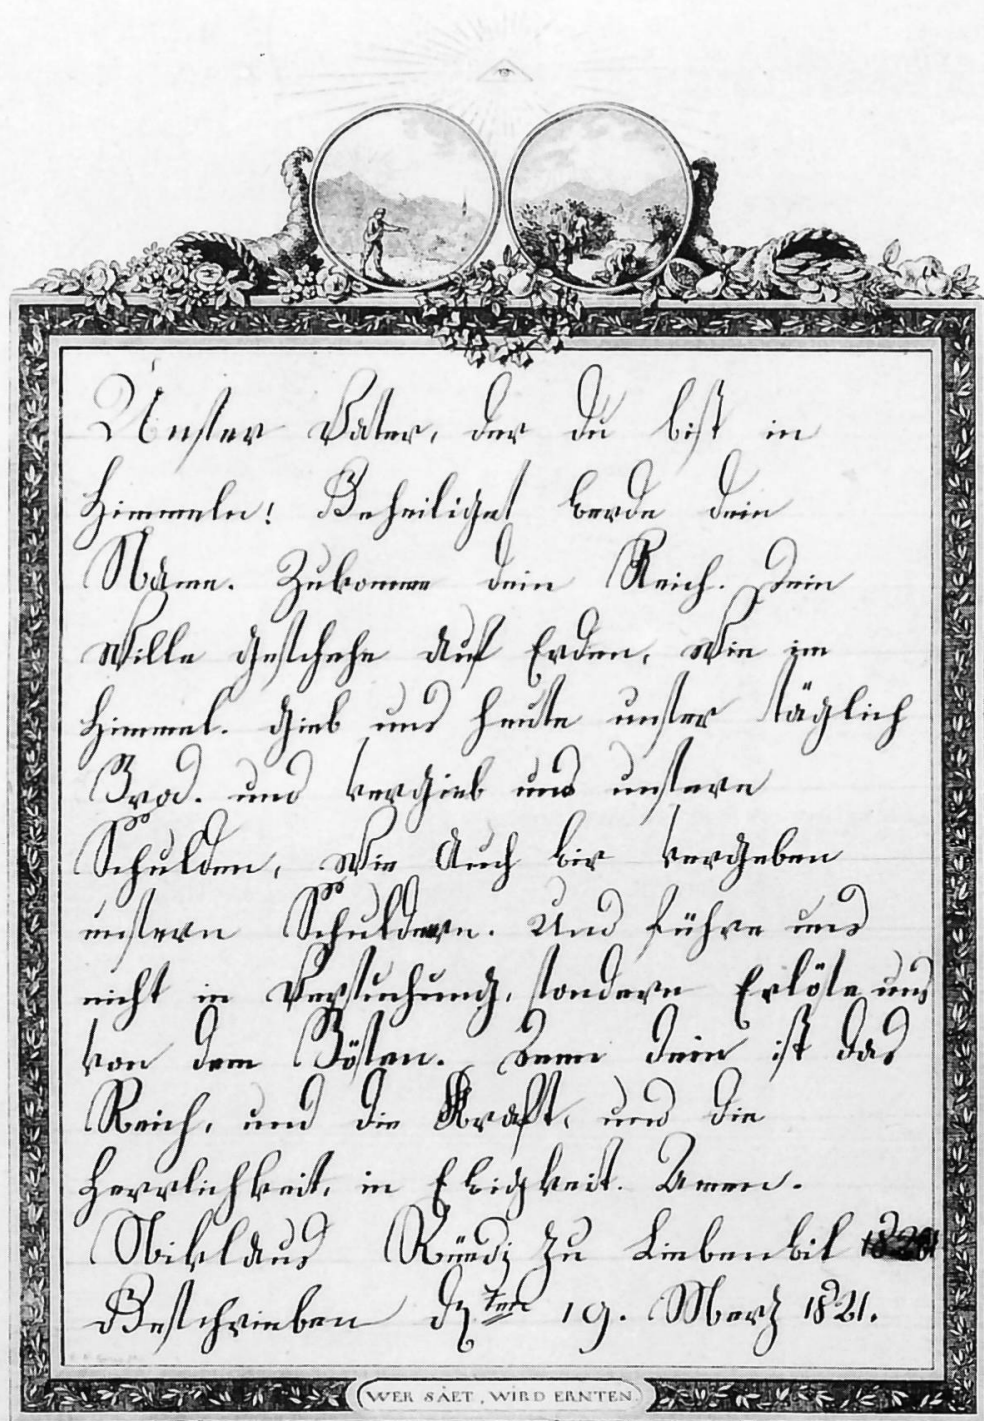 Unser Vater, der du bist in
Himmeln! Geheiliget werde dein
Name. Zukomme dein Reich. Dein
Wille geschehe auf Erden, wie im
Himmel. Gieb uns heute unser täglich
Brod. und vergieb uns unsere
Schulden, wie auch wir vergeben
unsern Schuldern. Und führe uns
nicht in Versuchung, sondern Erlöse uns
von dem Bösen. Denn dein ist das
Reich, und die Kraft, und die
Herrlichkeit, in Ewigkeit. Amen.
Niklaus Rüedi zu Liebenwil
Geschrieben den 19. Merz 1821.
WER SÄET, WIRD ERNTEN